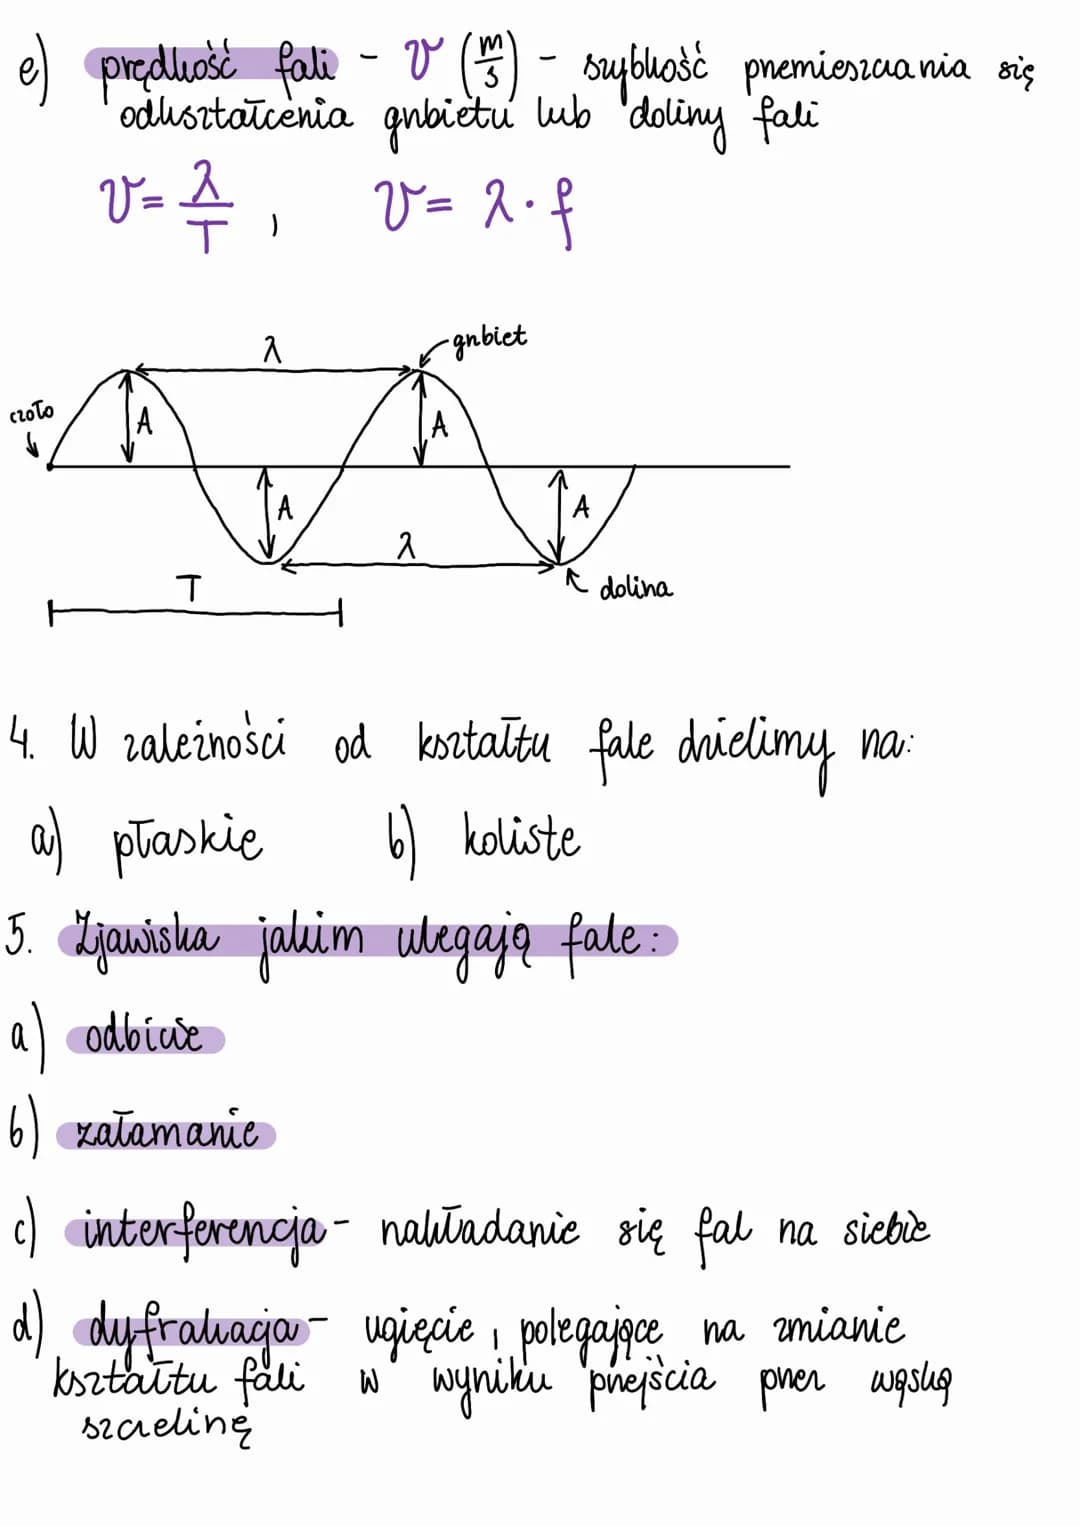 e) prędkość fali - v (m/s) - szybkość przemieszczania się
odkształcenia grzbietu lub doliny fali
v = λ/T , v = λ · f
λ
grzbiet
czoło
A
A
A
A
λ
T
dolina
4. W zależności od kształtu fale dzielimy na:
a) płaskie b) koliste
5. Zjawiska jakim ulegają fale:
a) odbicie
b) załamanie
c) interferencja - nakładanie się fal na siebie
d) dyfrakcja - ugięcie, polegające na zmianie
kształtu fali w wyniku przejścia przez wąską
szczelinę